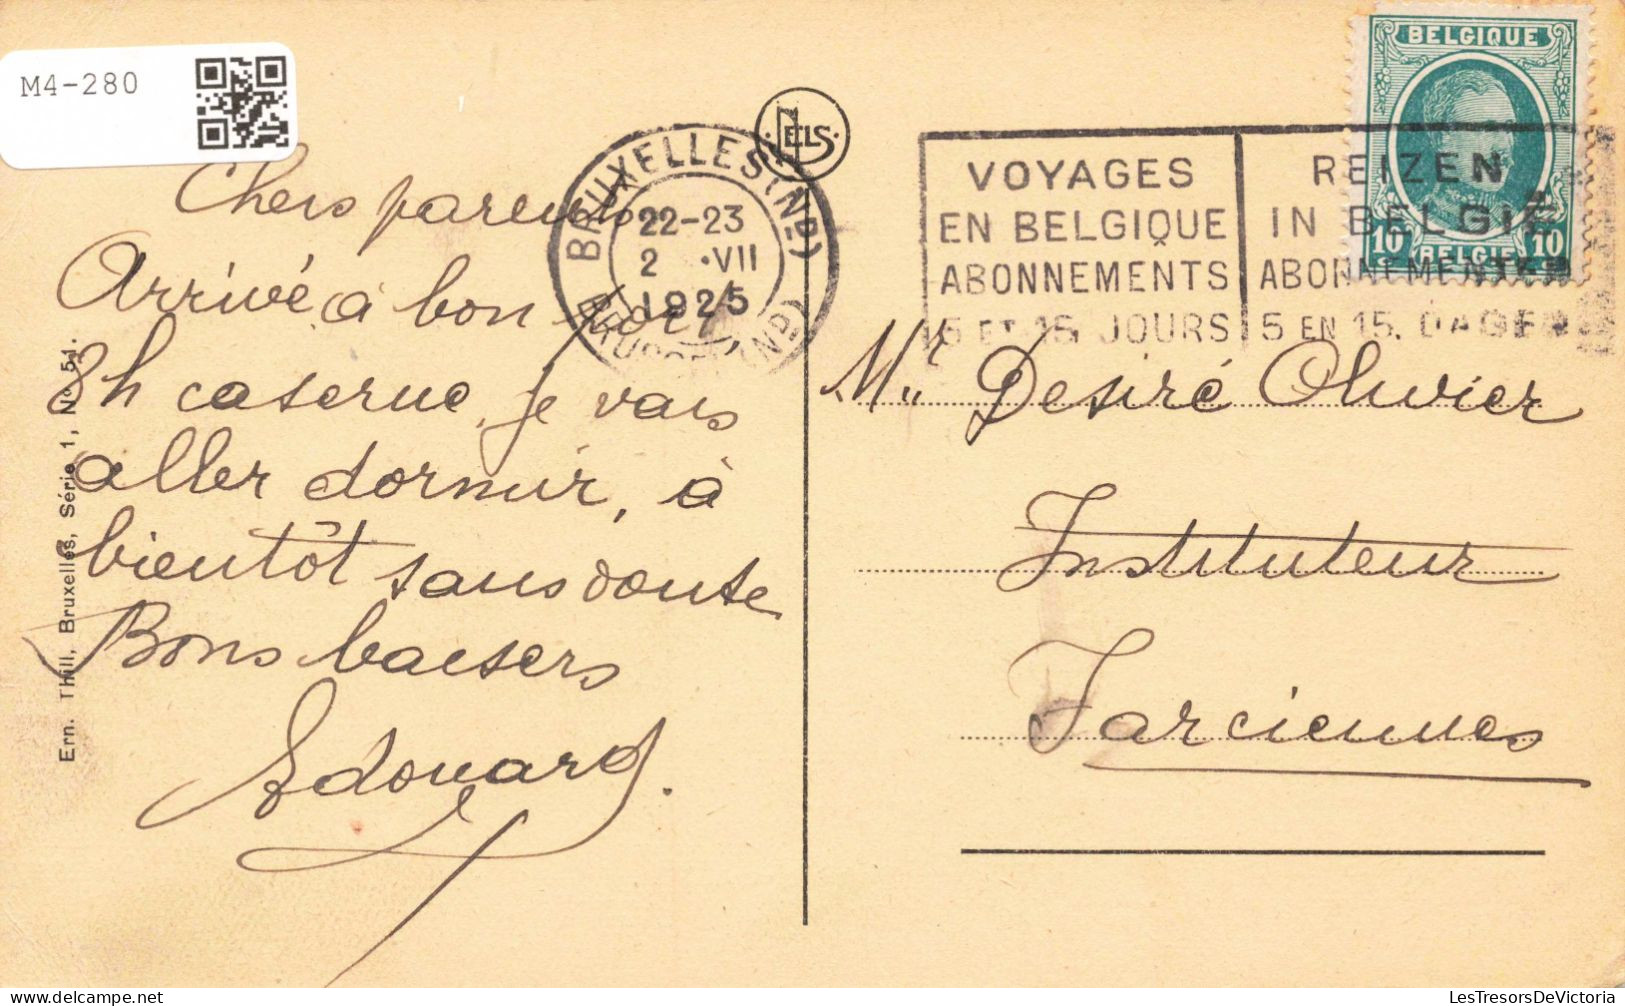 M4-280
Chers parents
Arrivé à bon port
8h caserne, je vais
aller dormir, à
bientôt sans doute
Bons baisers
Edouard.
Ern. Thill, Bruxelles, Série 1, No 51.
NELS
BRUXELLES (ND)
22-23
2 VII
1925
BRUSSEL (ND)
VOYAGES
EN BELGIQUE
ABONNEMENTS
5 ET 15 JOURS
REIZEN
IN BELGIË
ABONNEMENTEN
5 EN 15 DAGEN
BELGIQUE
10 10
BELGIË
Mr Desiré Olivier
Instituteur
Farciennes
delcampe.net
LesTresorsDeVictoria